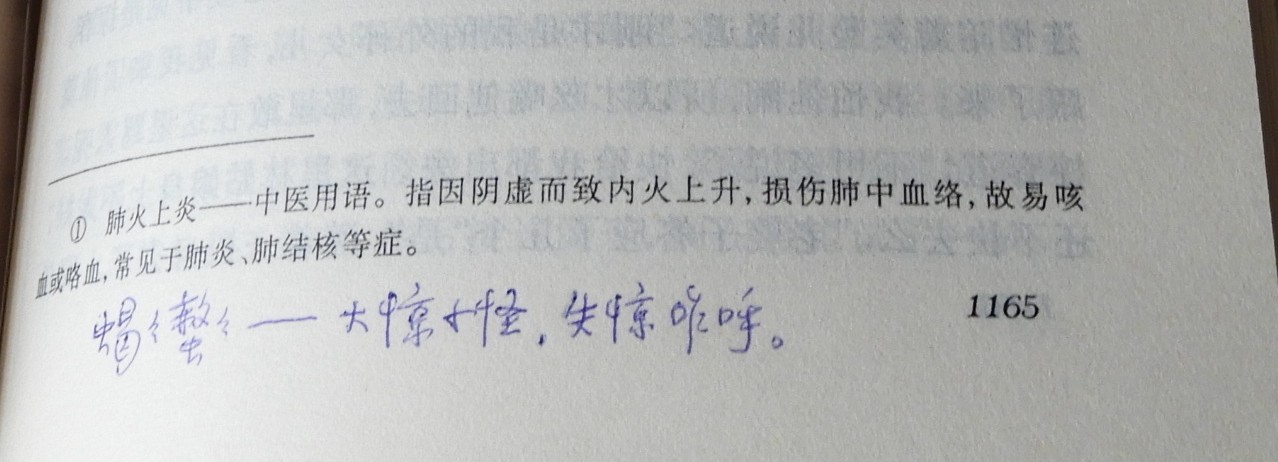 ① 肺火上炎——中医用语。指因阴虚而致内火上升,损伤肺中血络,故易咳
血或咯血,常见于肺炎、肺结核等症。
蝎々螫々——大惊小怪,失惊咋呼。
1165